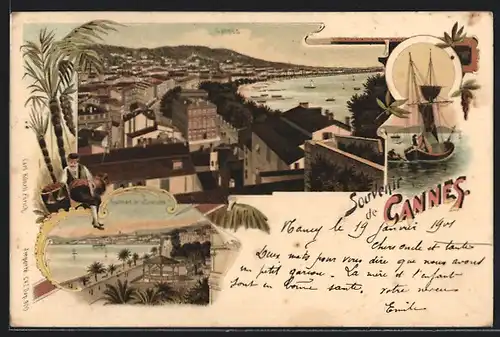 CANNES
Souvenir
de
CANNES.
Nancy le 19 Janvier 1901
Chers oncle et tante
Deux mots pour vous dire que nous avons
un petit garçon. La mère et l'enfant
sont en bonne santé. votre neveu
Emile